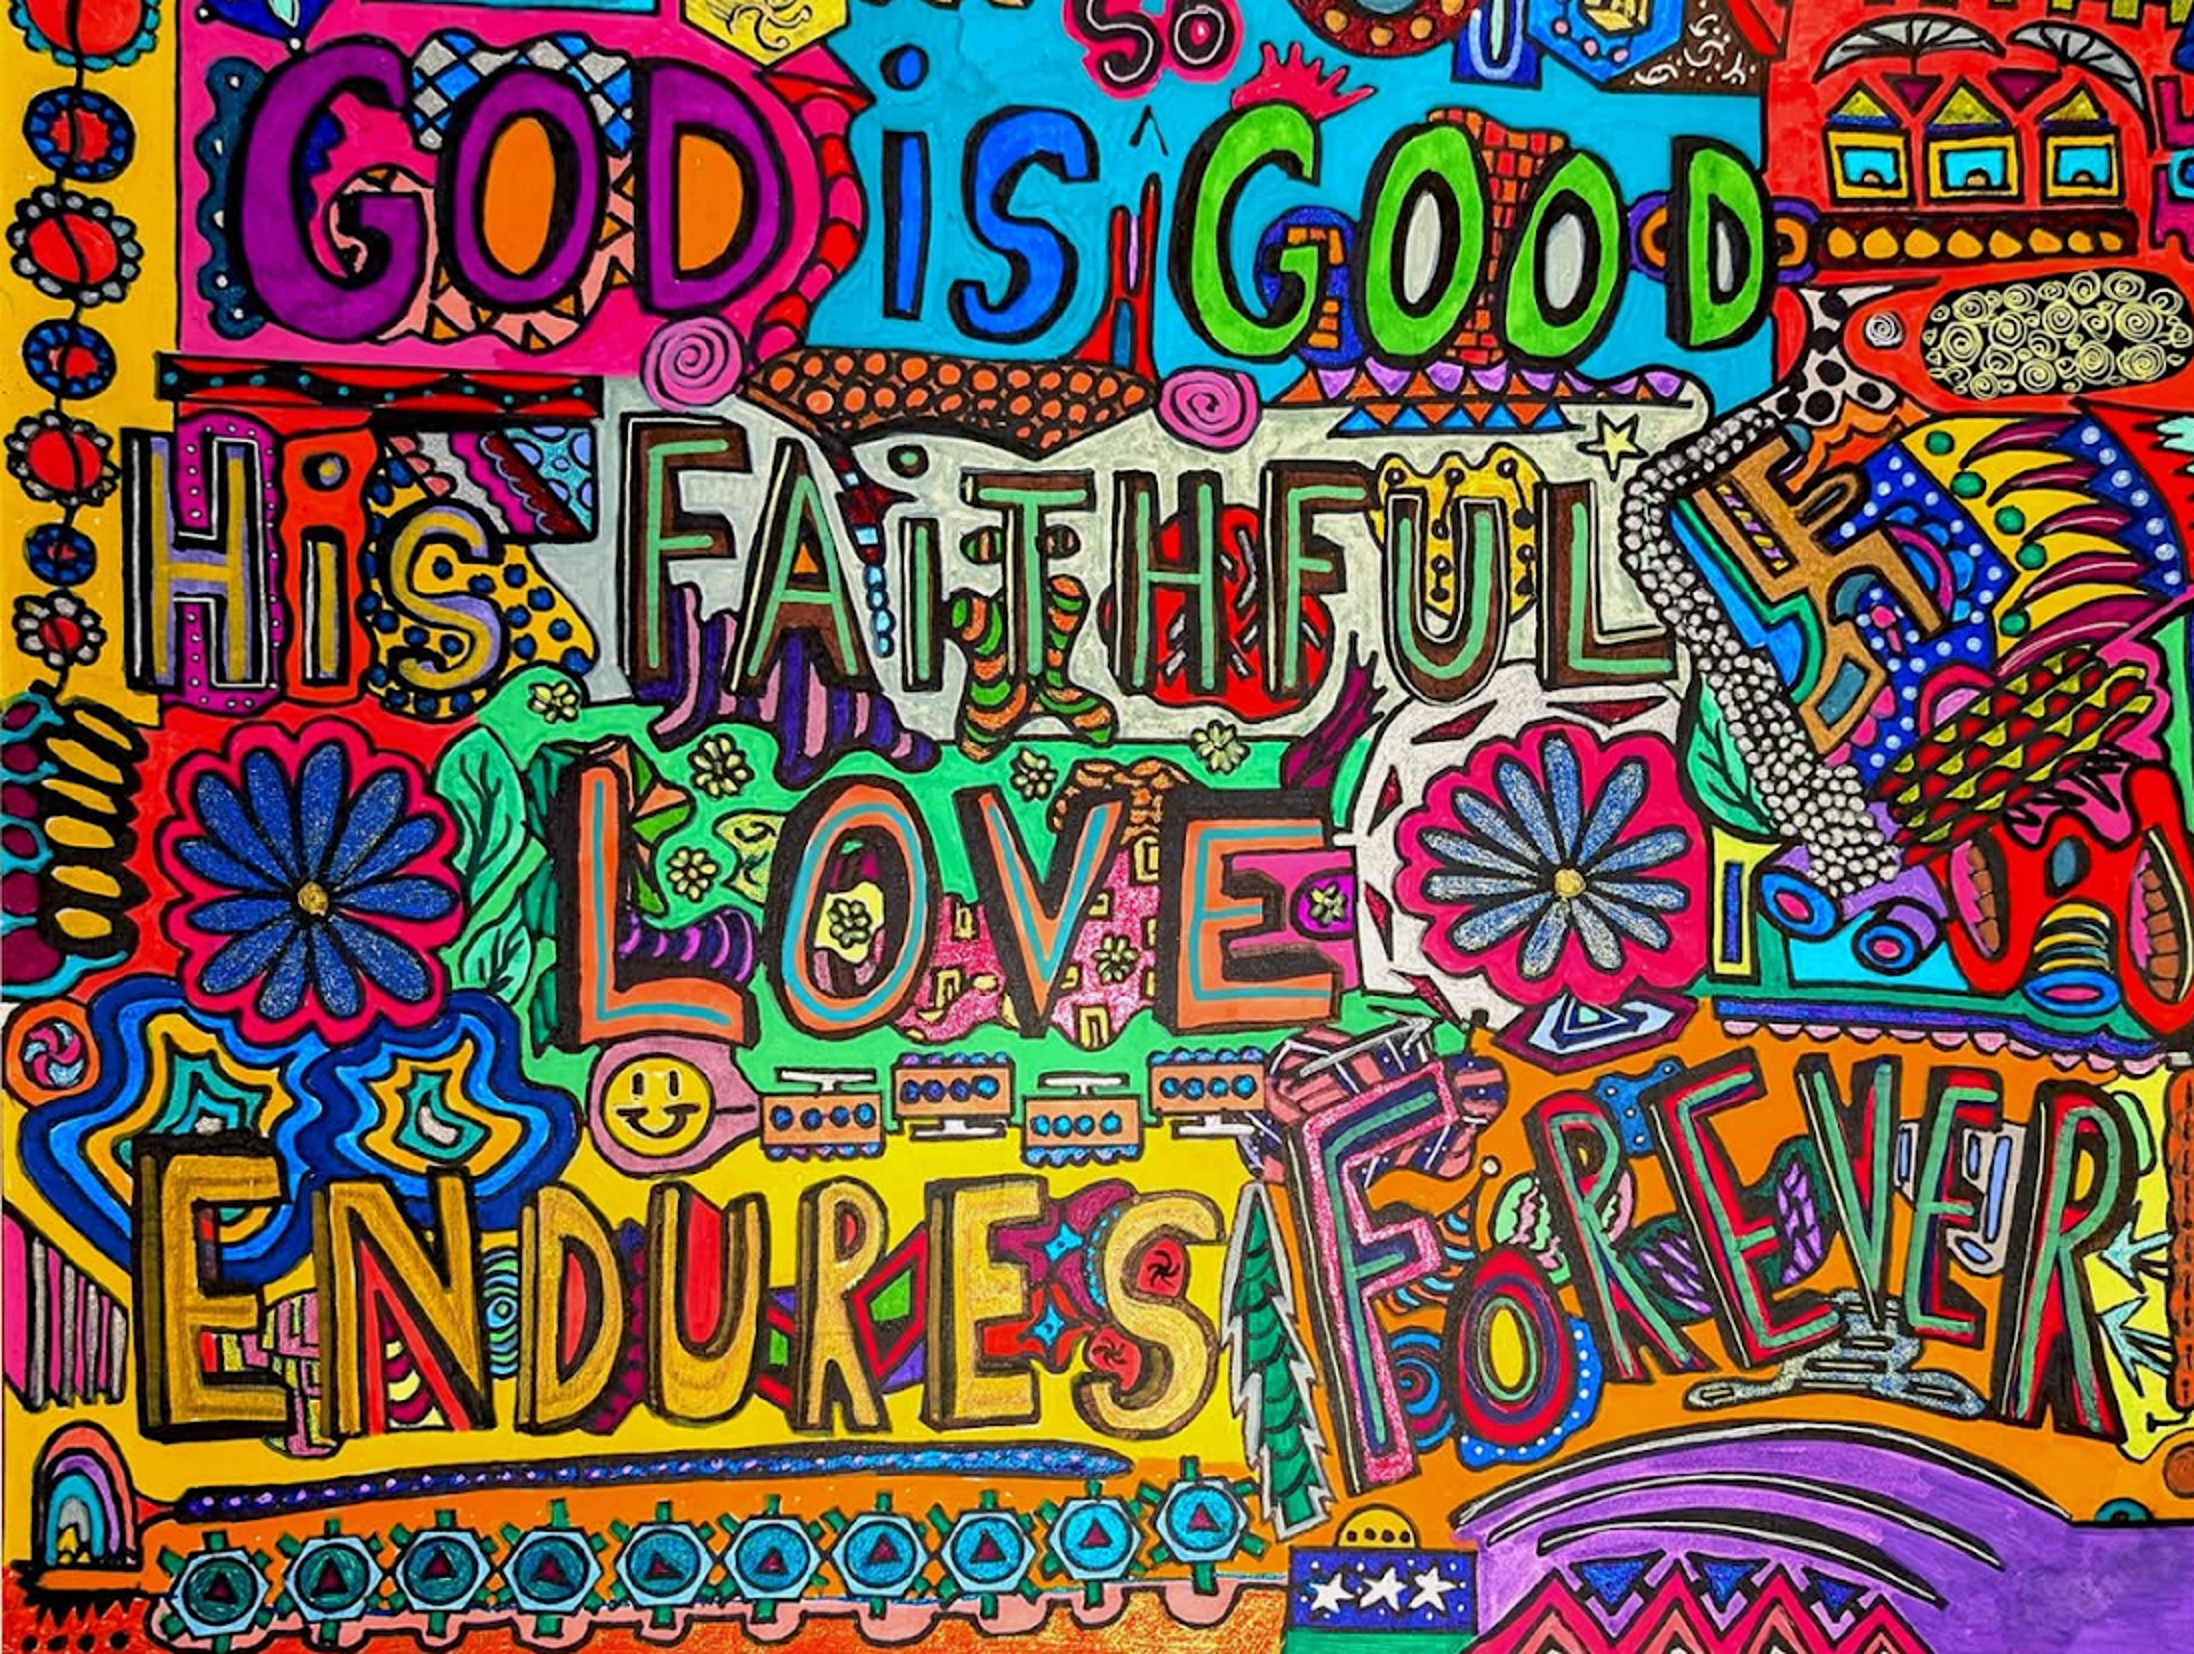 GOD iS SO GOOD
HiS FAiTHFUL
LOVE
ENDURES FOREVER